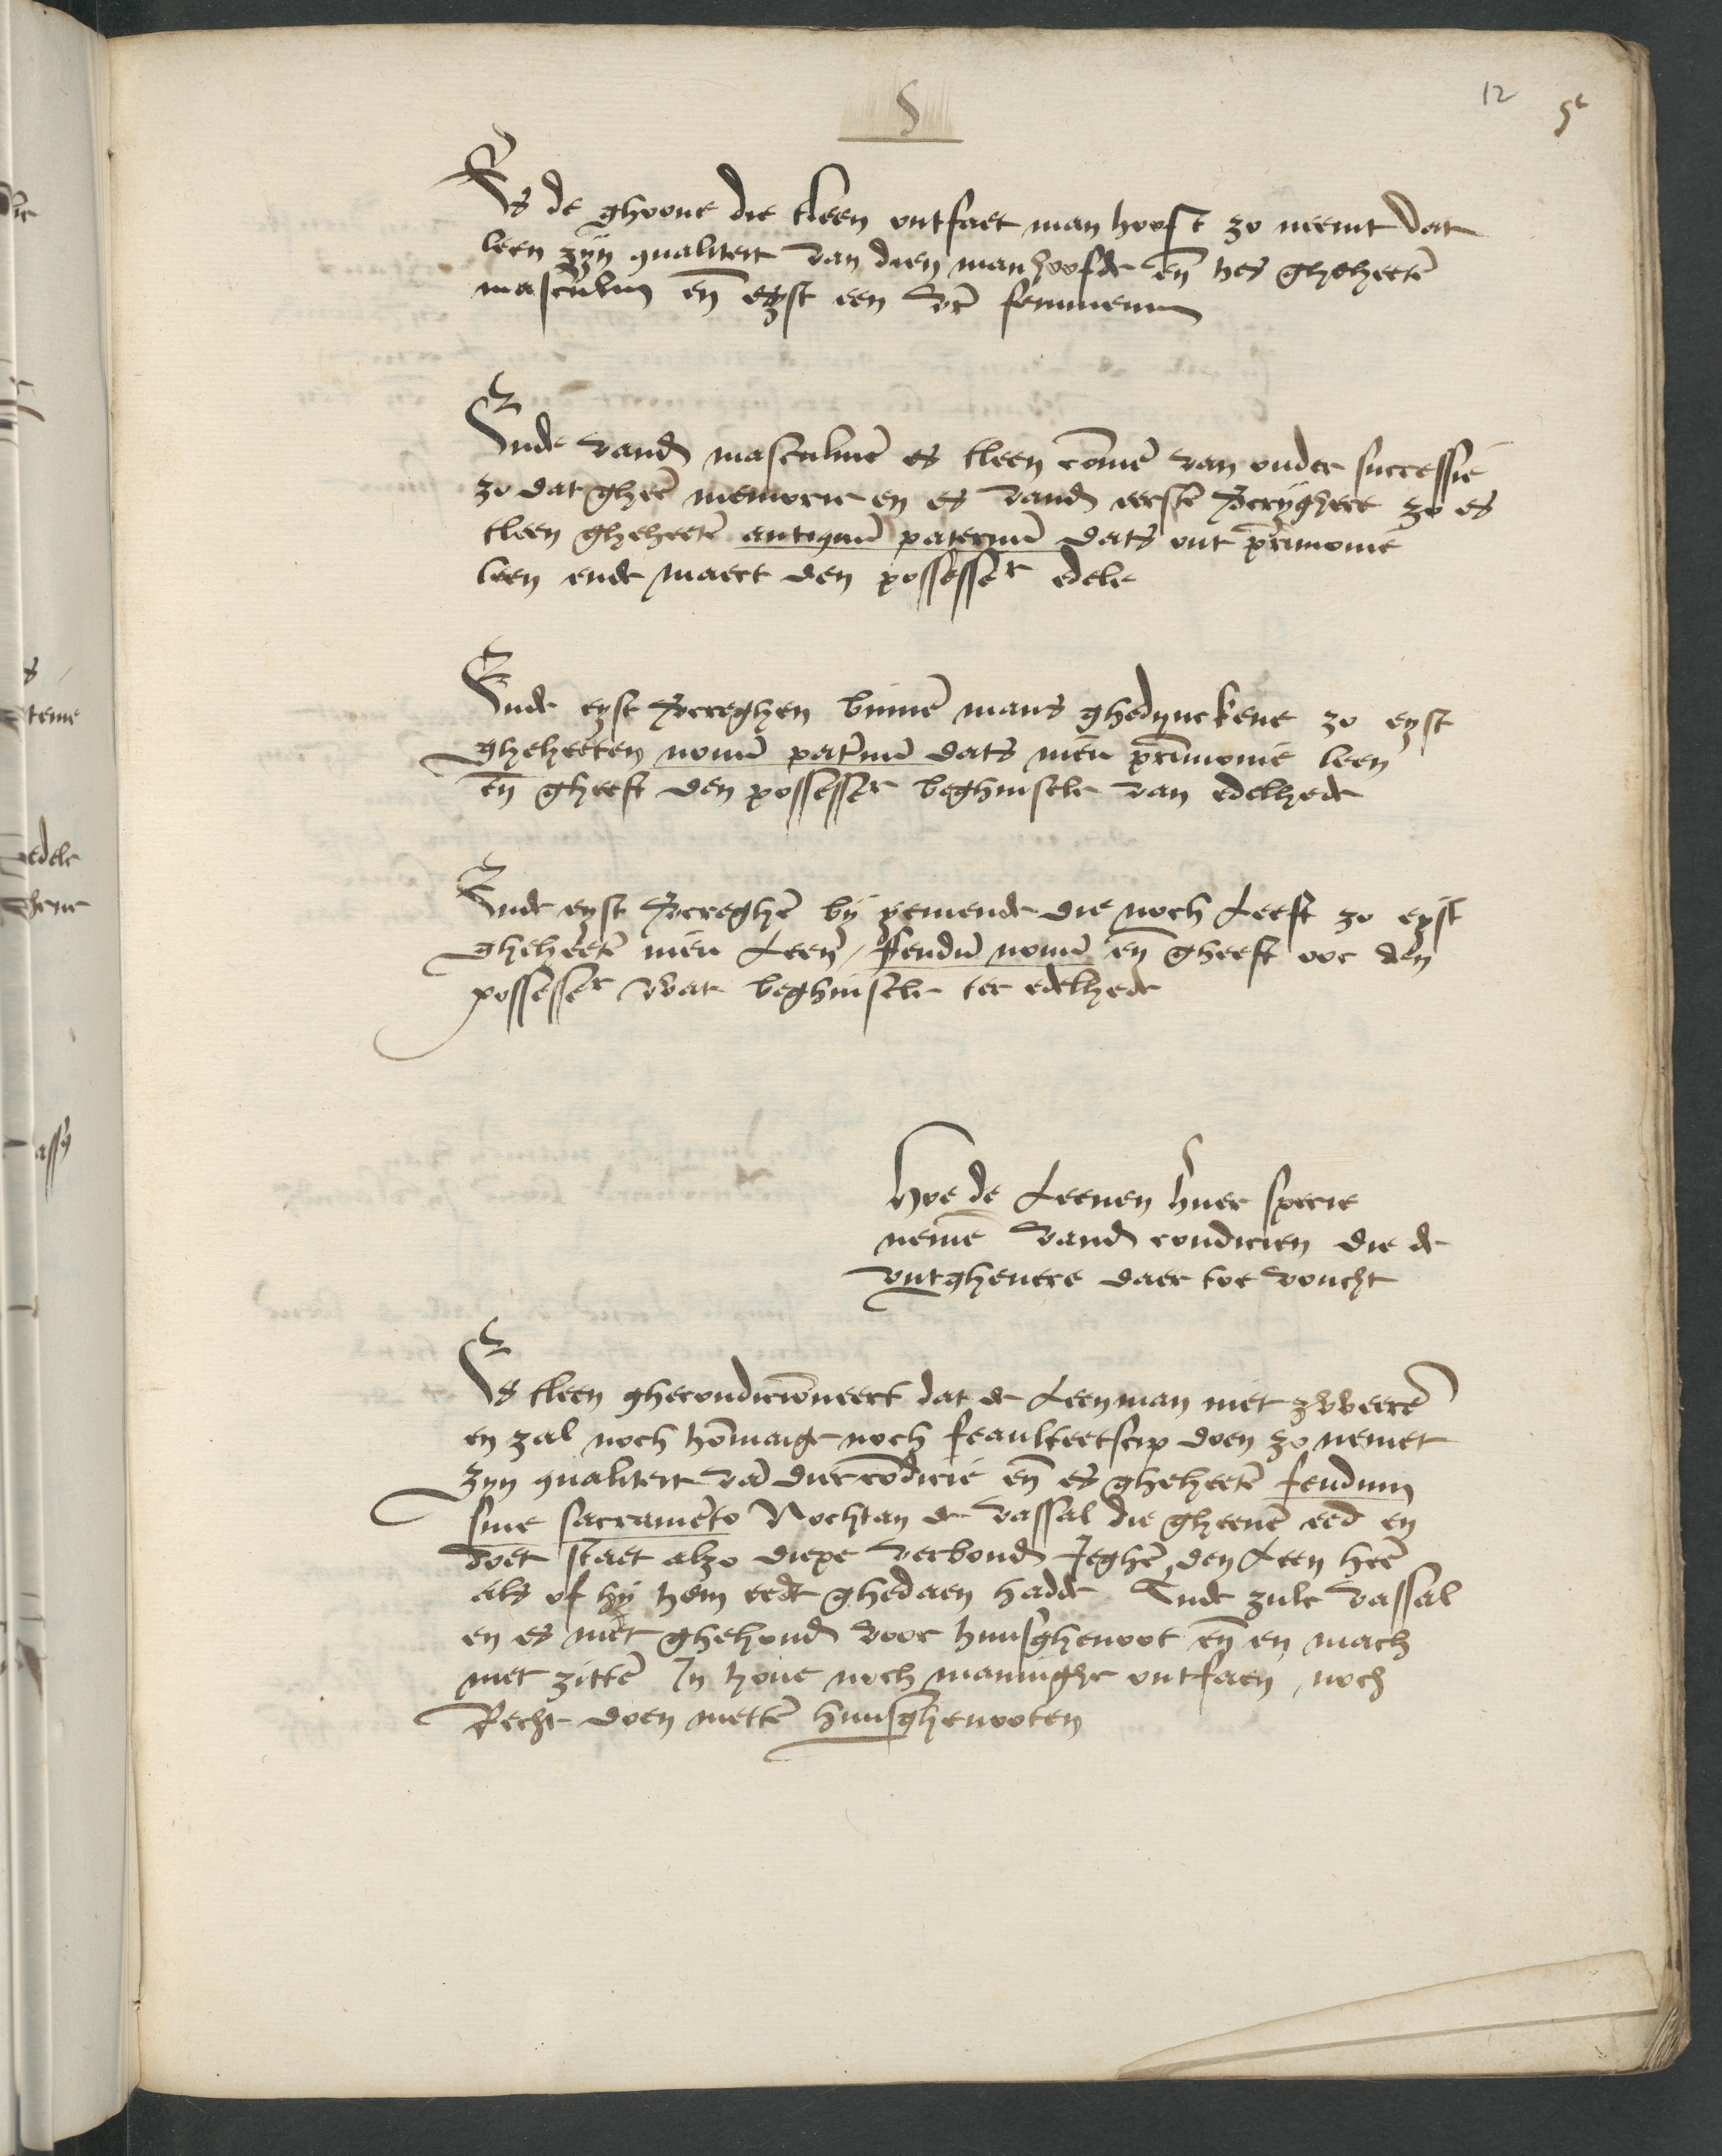 5
12 5c
Es de ghoone die tleen ontfaet man hooft zo neemt dat
leen zijn qualiteit van dien manhoofde en̄ hes ghehectē
masculin en̄ eyst een vr femmenin
Ende vand masculinē es tleen cōmē van ouder successie
zo dat gheē memorie en es vand eerstē vcryghere zo es
tleen gheheetē antiquū paternū dats out prīmonie
leen ende maect den possesser edele
Ende eyst vcreghen binnē mans ghedynckene zo eyst
gheheeten nouū paternū dats nieu prīmonie leen
en̄ gheeft den possesser beghinsele van edelhede
Ende eyst vcreghē bij yemende die noch Leeft zo eyst
gheheetē nieu Leen / ffeudū nouū en̄ gheeft ooc den
possesser wat beghinsele ter edelhede
Hoe de Leenen huer specie
nemē vand condicien die de
vutgheuere daer toe voucht
Es tleen ghecondicioneert dat de Leenman niet zweerē
en zal noch hōmaige noch feaulteetscip doen zo nemet
zyn qualiteit vā dier cōdicie en̄ es gheheetē feudum
sine sacramēto Nochtan de vassal die gheenē eed en
doet staet alzo diepe verbonđ Jeghē den Leen heē
als of hij hem eedt ghedaen hadde Ende zulc vassal
en es niet ghehoud voor huusghenoot en̄ en mach
niet zittē Jn houe noch manninghe ontfaen noch
Recht doen mettē huusghenooten